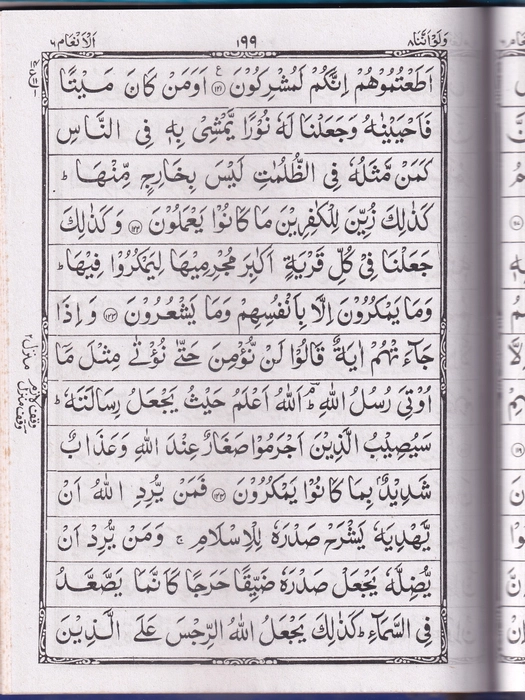 وَلَوْاَنَّنَا ٨ ١٩٩ اَلْاَنْعَام ٦
اَطَعْتُمُوْهُمْ اِنَّكُمْ لَمُشْرِكُوْنَ ﴿١٢١﴾ اَوَمَنْ كَانَ مَيْتًا
فَاَحْيَيْنٰهُ وَجَعَلْنَا لَهٗ نُوْرًا يَّمْشِيْ بِهٖ فِي النَّاسِ
كَمَنْ مَّثَلُهٗ فِي الظُّلُمٰتِ لَيْسَ بِخَارِجٍ مِّنْهَا ؕ
كَذٰلِكَ زُيِّنَ لِلْكٰفِرِيْنَ مَا كَانُوْا يَعْمَلُوْنَ ﴿١٢٢﴾ وَكَذٰلِكَ
جَعَلْنَا فِيْ كُلِّ قَرْيَةٍ اَكٰبِرَ مُجْرِمِيْهَا لِيَمْكُرُوْا فِيْهَا ؕ
وَمَا يَمْكُرُوْنَ اِلَّا بِاَنْفُسِهِمْ وَمَا يَشْعُرُوْنَ ﴿١٢٣﴾ وَاِذَا
جَآءَتْهُمْ اٰيَةٌ قَالُوْا لَنْ نُّؤْمِنَ حَتّٰى نُؤْتٰى مِثْلَ مَآ
اُوْتِيَ رُسُلُ اللهِ ؕۘ اَللهُ اَعْلَمُ حَيْثُ يَجْعَلُ رِسَالَتَهٗ ؕ
سَيُصِيْبُ الَّذِيْنَ اَجْرَمُوْا صَغَارٌ عِنْدَ اللهِ وَعَذَابٌ
شَدِيْدٌۢ بِمَا كَانُوْا يَمْكُرُوْنَ ﴿١٢٤﴾ فَمَنْ يُّرِدِ اللهُ اَنْ
يَّهْدِيَهٗ يَشْرَحْ صَدْرَهٗ لِلْاِسْلَامِ ۚ وَمَنْ يُّرِدْ اَنْ
يُّضِلَّهٗ يَجْعَلْ صَدْرَهٗ ضَيِّقًا حَرَجًا كَاَنَّمَا يَصَّعَّدُ
فِي السَّمَآءِ ؕ كَذٰلِكَ يَجْعَلُ اللهُ الرِّجْسَ عَلَى الَّذِيْنَ
منزل ٢
وقف لازم
وقف منزل